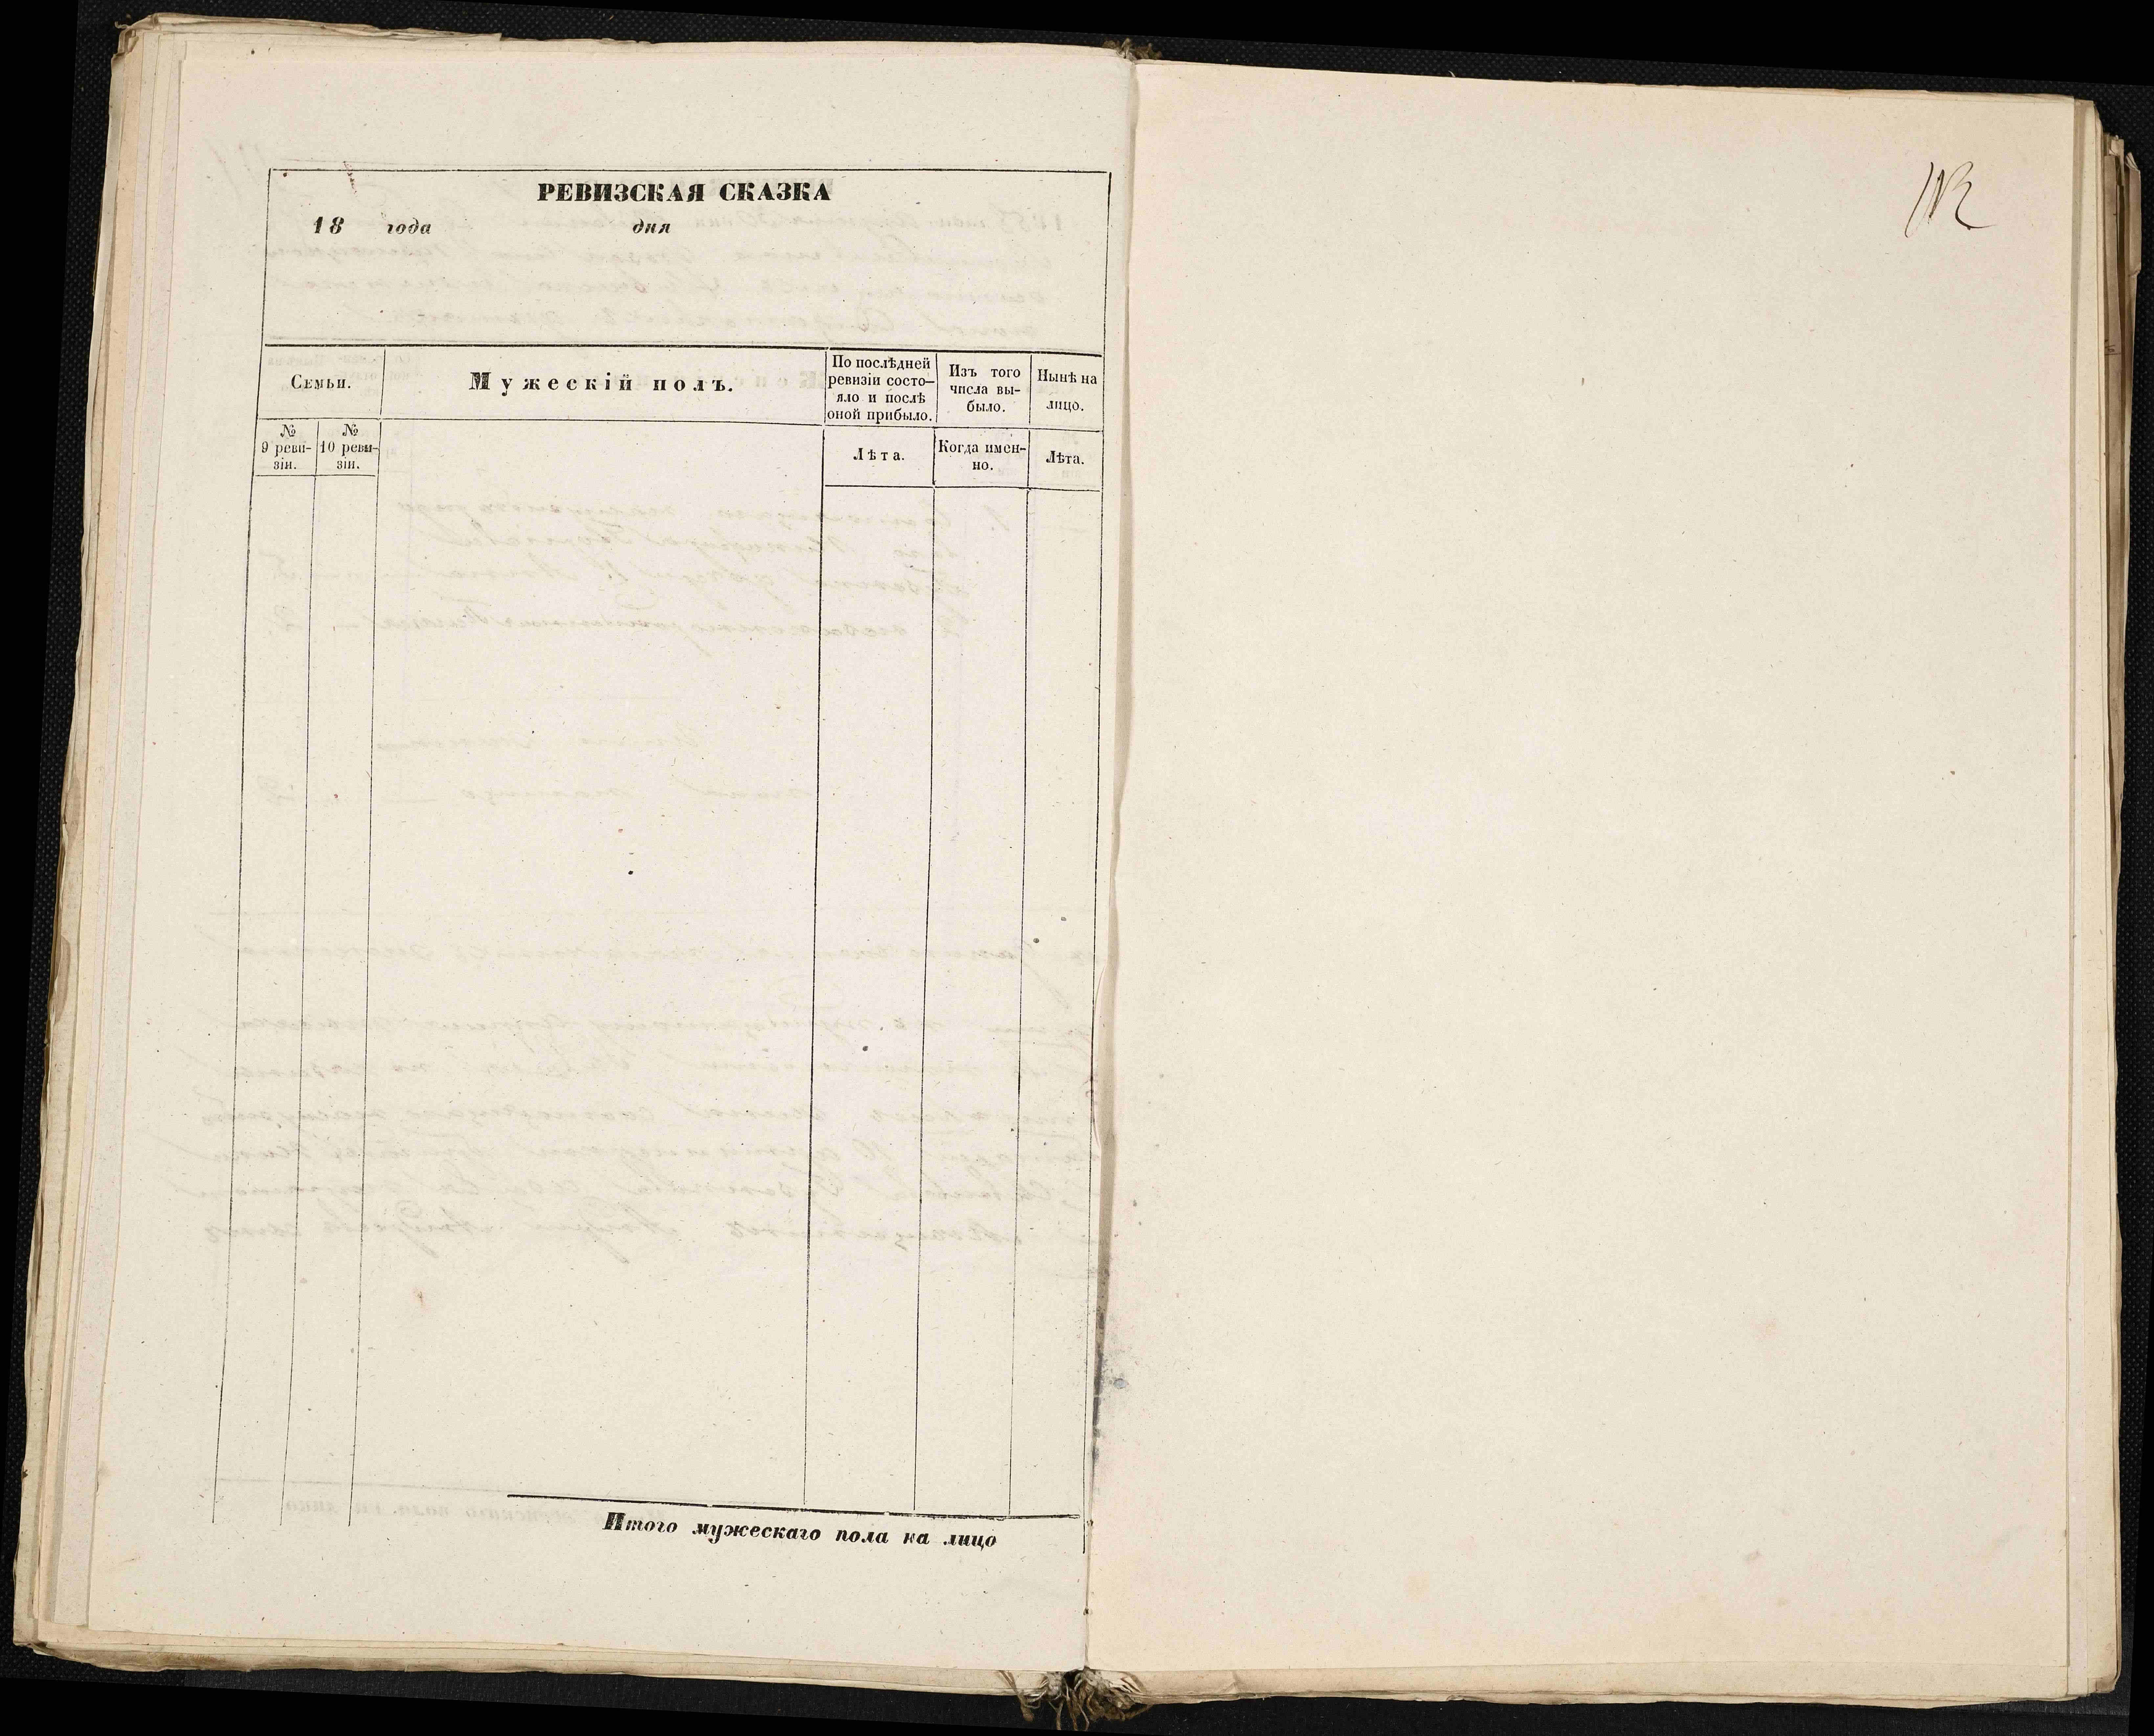 РЕВИЗСКАЯ СКАЗКА
18 года дня
Семьи.
Мужескій полъ.
По послѣдней
ревизіи состо-
яло и послѣ
оной прибыло.
Изъ того
числа вы-
было.
Нынѣ на
лицо.
№
9 реви-
зіи.
№
10 реви-
зіи.
Лѣта.
Когда имен-
но.
Лѣта.
Итого мужескаго пола на лицо
112